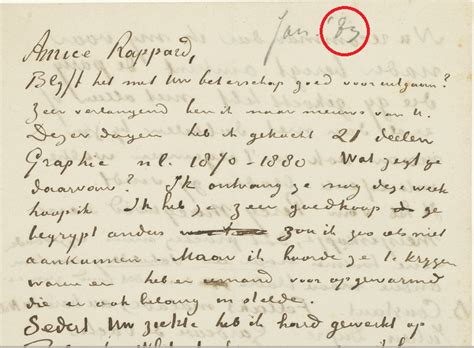 Jan. '83
Amice Rappard,
Blyft het met Uw beterschap goed vooruitgaan?
Zeer verlangend ben ik naar nieuws van U.
Dezer dagen heb ik gekocht 21 deelen
Graphic nl. 1870-1880 Wat zegt ge
daarvan? Ik ontvang ze nog deze week
hoop ik Ik heb ze zeer goedkoop ge
begrypt anders zou ik zoo iets niet
aankunnen – Maar ik hoorde ze te krygen
waren en heb er iemand voor opgewarmd
die er ook belang in stelde.
Sedert Uw ziekte heb ik hard gewerkt op